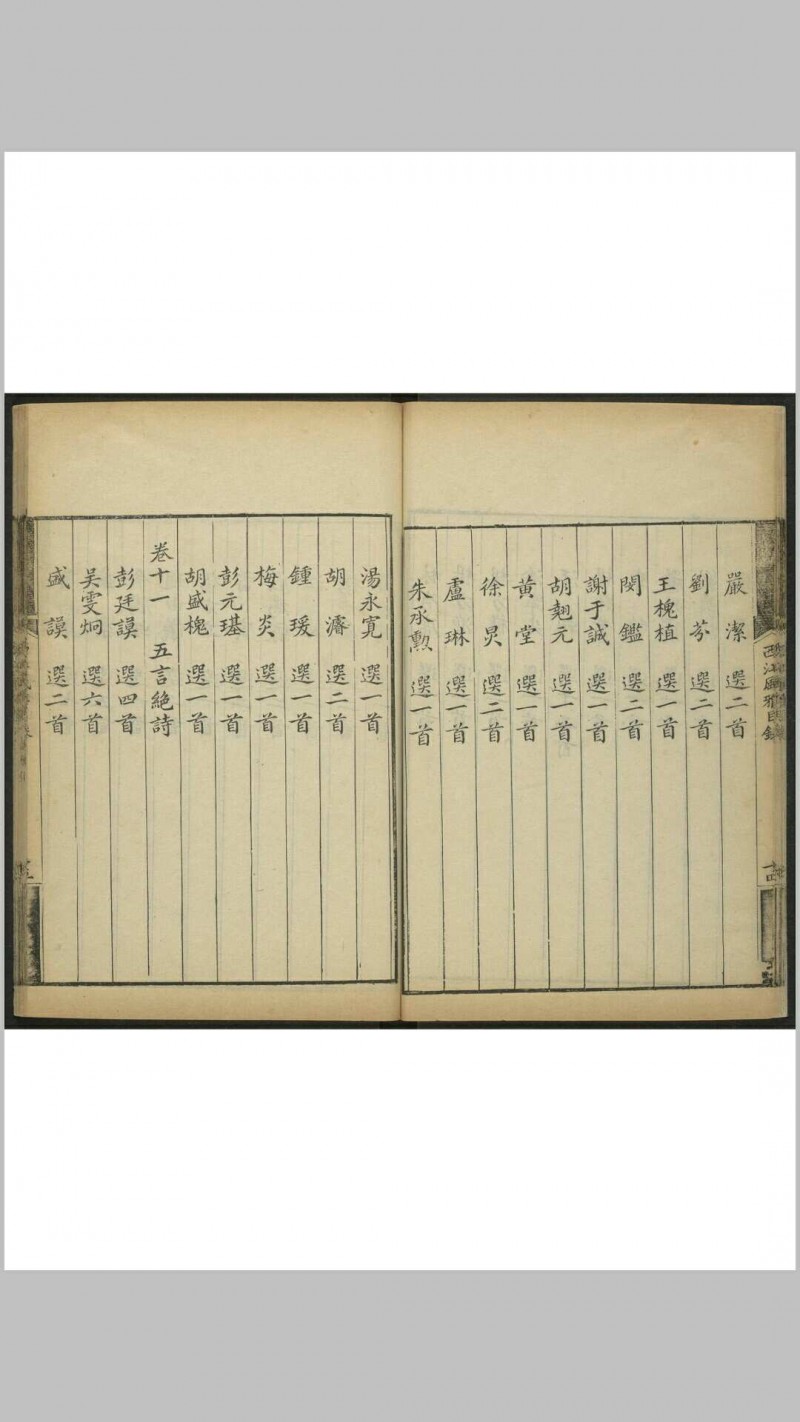 嚴潔 選二首
劉芬 選二首
王槐植 選一首
閔鑑 選二首
謝于誠 選一首
胡翹元 選一首
黄堂 選一首
徐炅 選二首
盧琳 選一首
朱承勲 選一首
湯永寛 選一首
胡濬 選二首
鍾瑗 選一首
梅炎 選一首
彭元瑾 選一首
胡盛槐 選一首
卷十一 五言絶詩
彭廷謨 選四首
吴雯炯 選六首
盛謨 選二首
西江風雅目錄